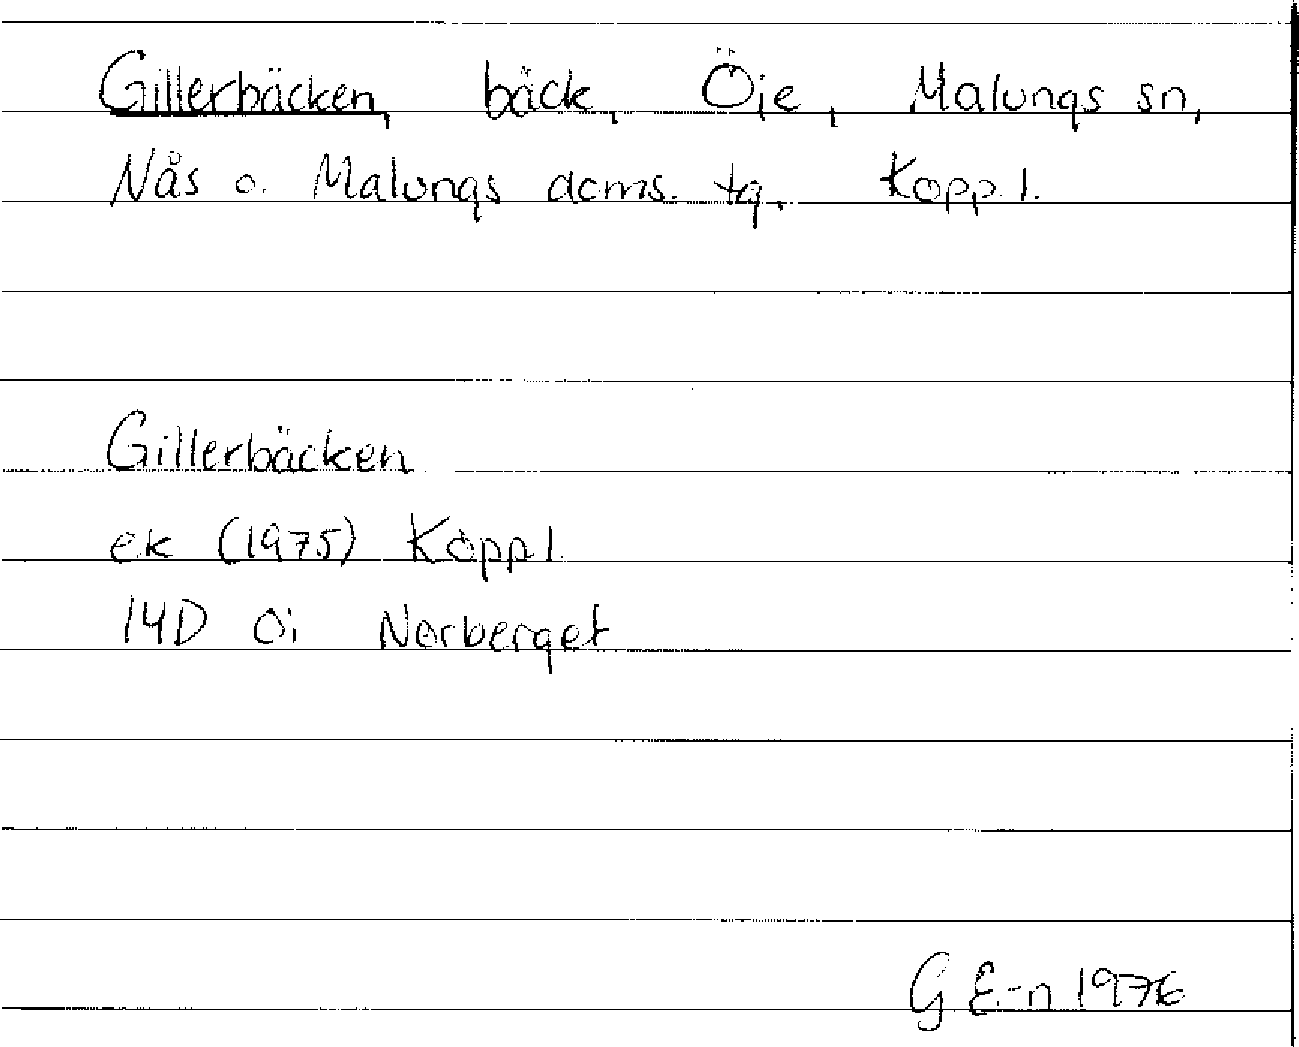 Gillerbäcken, bäck, Öje, Malungs sn,
Nås o. Malungs doms. tg. Kopp.l.
Gillerbäcken
ek (1975) Koppl.
14D 0i Norberget
G E-n 1976